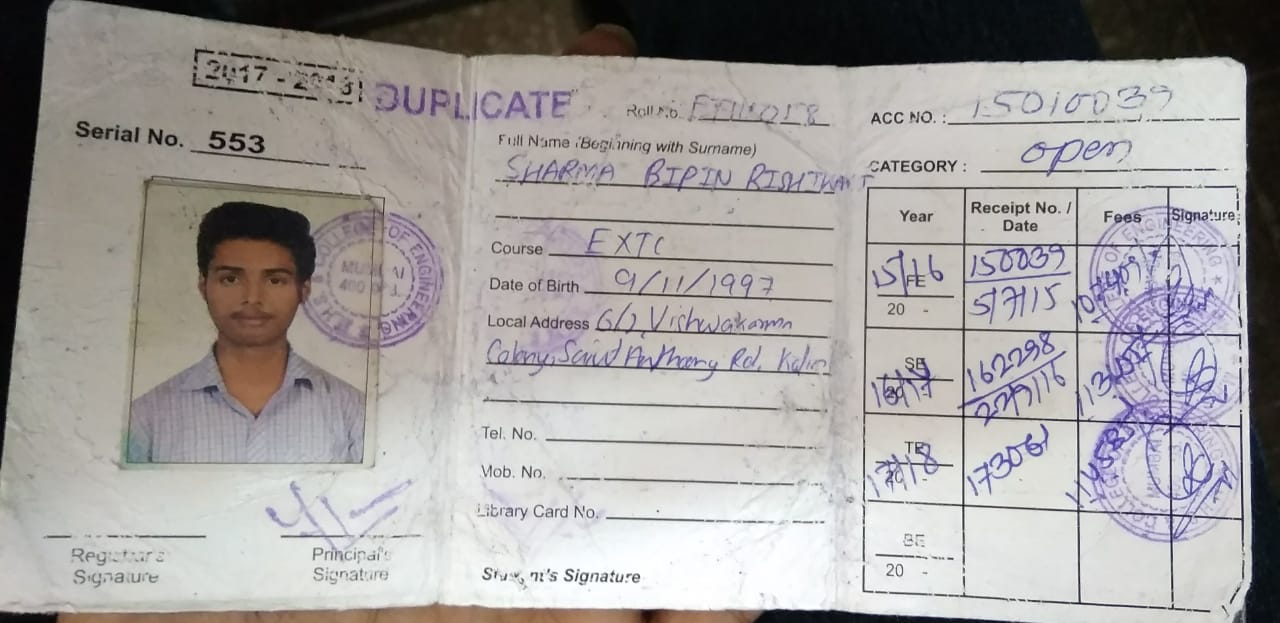 2017 - 2018
DUPLICATE
Serial No. 553
COLLEGE OF ENGINEERING
Registrar's
Signature
Principal's
Signature
Roll No.
Full Name (Beginning with Surname)
SHARMA BIPIN RISHIKANT
Course EXTC
Date of Birth 9/11/1997
Local Address G/2, Vishwakarma
Colony, Saint Anthony Rd,
Tel. No.
Mob. No.
Library Card No.
Student's Signature
ACC NO. : 15010039
CATEGORY : open
Year Receipt No. / Date Fees Signature
15/16 FE 20 - 150039 5/7/15
16/17 SE 162298
17/18 TE 173061
BE 20 -